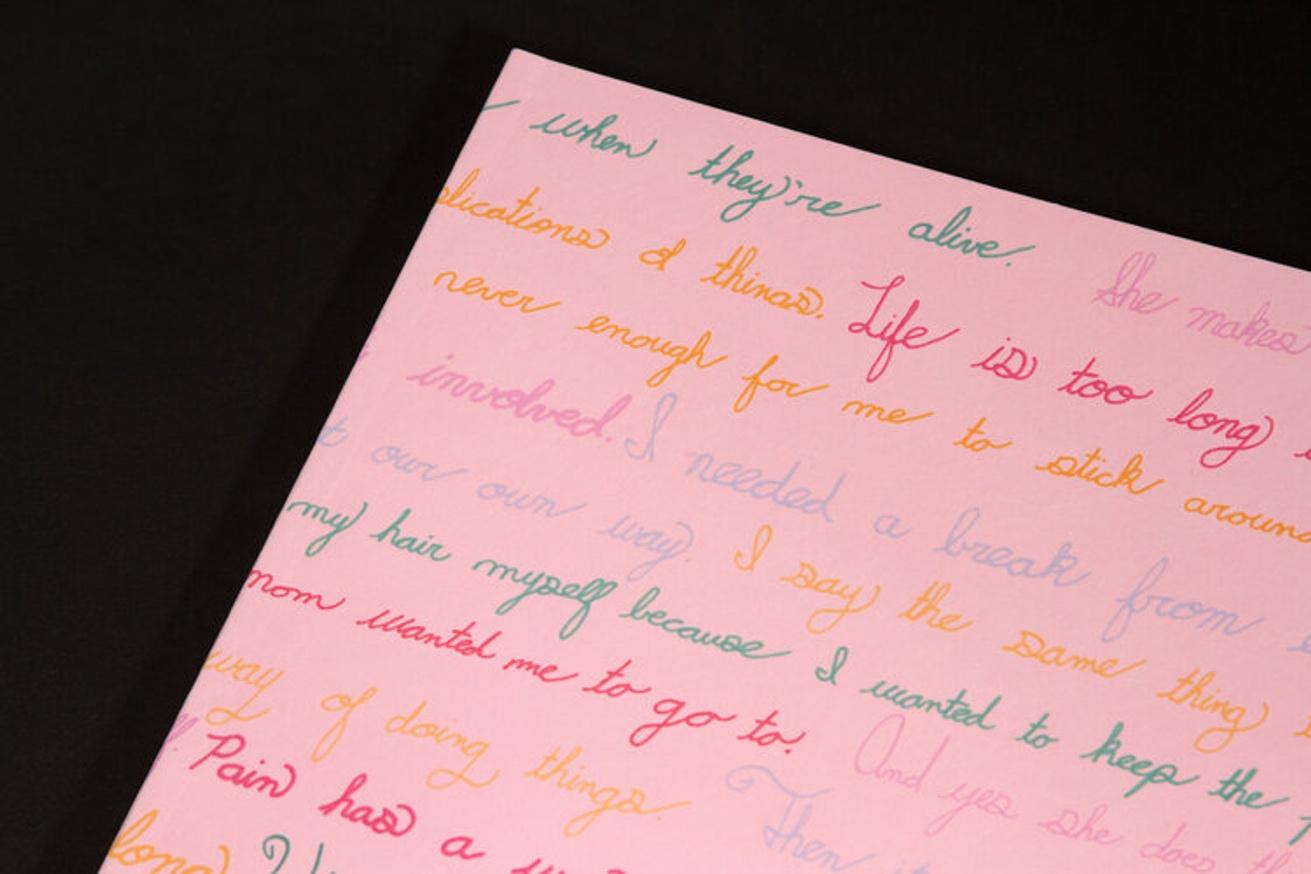 when they're alive. She makes
plications of things. Life is too long
never enough for me to stick around
involved. I needed a break from
t our own way. I say the same thing
my hair myself because I wanted to keep the
mom wanted me to go to. And yes she does th
way of doing things. Then it
Pain has a
long